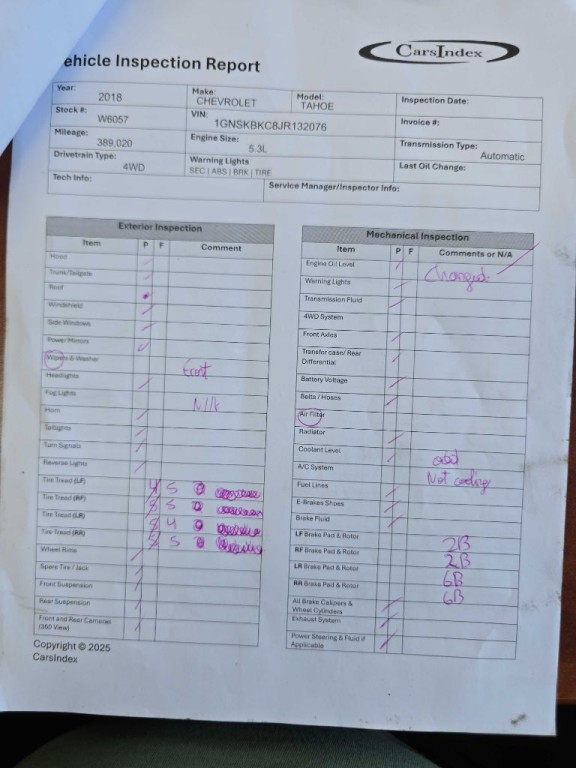 CarsIndex
ehicle Inspection Report
Year: 2018 Make: CHEVROLET Model: TAHOE Inspection Date:
Stock #: W6057 VIN: 1GNSKBKC8JR132076 Invoice #:
Mileage: 389,020 Engine Size: 5.3L Transmission Type: Automatic
Drivetrain Type: 4WD Warning Lights SEC | ABS | BRK | TIRE Last Oil Change:
Tech Info: Service Manager/Inspector Info:
Exterior Inspection
Item P F Comment
Hood
Trunk/Tailgate
Roof
Windshield
Side Windows
Power Mirrors
Wipers & Washer Front
Headlights
Fog Lights N/A
Horn
Taillights
Turn Signals
Reverse Lights
Tire Tread (LF) 5
Tire Tread (RF) 5
Tire Tread (LR) 4
Tire Tread (RR) 5
Wheel Rims
Spare Tire / Jack
Front Suspension
Rear Suspension
Front and Rear Cameras
(360 View)
Copyright © 2025
CarsIndex
Mechanical Inspection
Item P F Comments or N/A
Engine Oil Level Changed
Warning Lights
Transmission Fluid
4WD System
Front Axles
Transfer case/ Rear
Differential
Battery Voltage
Belts / Hoses
Air Filter
Radiator
Coolant Level
A/C System Not cooling
Fuel Lines
E-Brakes Shoes
Brake Fluid
LF Brake Pad & Rotor 2B
RF Brake Pad & Rotor 2B
LR Brake Pad & Rotor 6B
RR Brake Pad & Rotor 6B
All Brake Calipers &
Wheel Cylinders
Exhaust System
Power Steering & Fluid if
Applicable